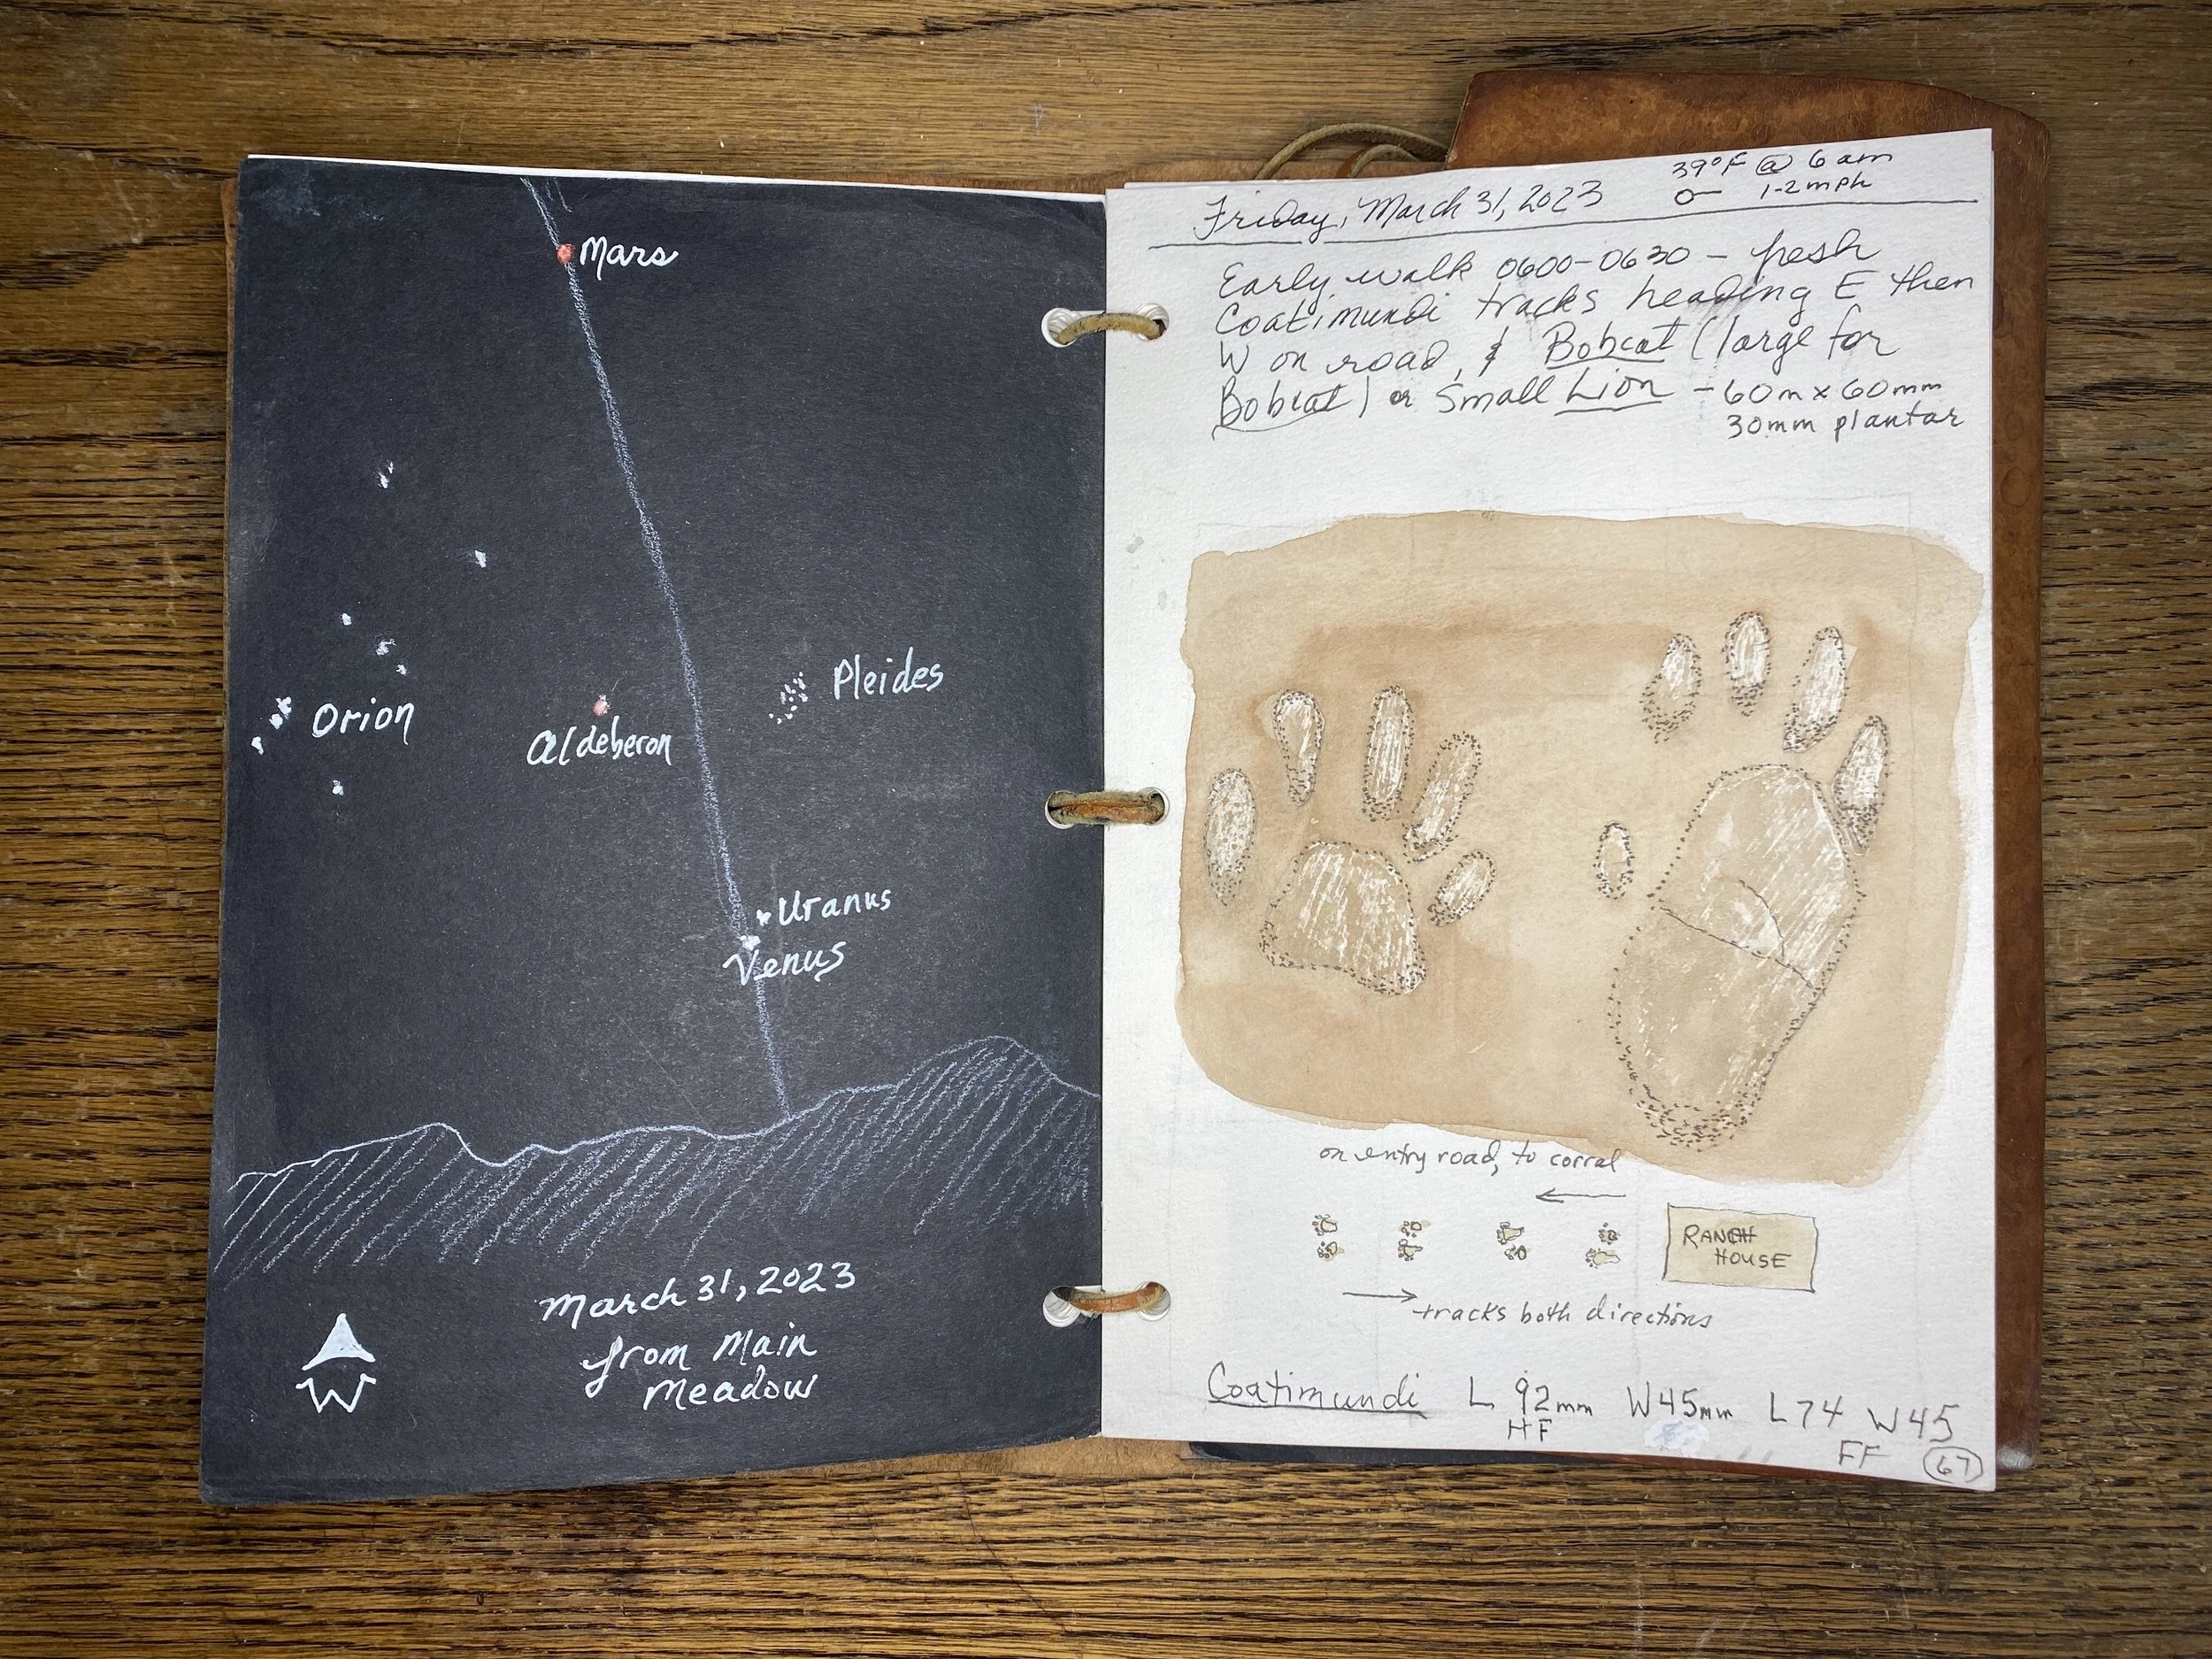 Mars
Pleides
Orion
Aldeberon
Uranus
Venus
March 31, 2023
from Main
Meadow
W
39°F @ 6 am
Friday, March 31, 2023
1-2 mph
Early walk 0600-0630 - fresh
Coatimundi tracks heading E then
W on road, & Bobcat (large for
Bobcat) or Small Lion - 60m x 60mm
30mm plantar
on entry road, to corral
RANCH
HOUSE
tracks both directions
Coatimundi L 92mm W45mm L74 W45
HF FF 67